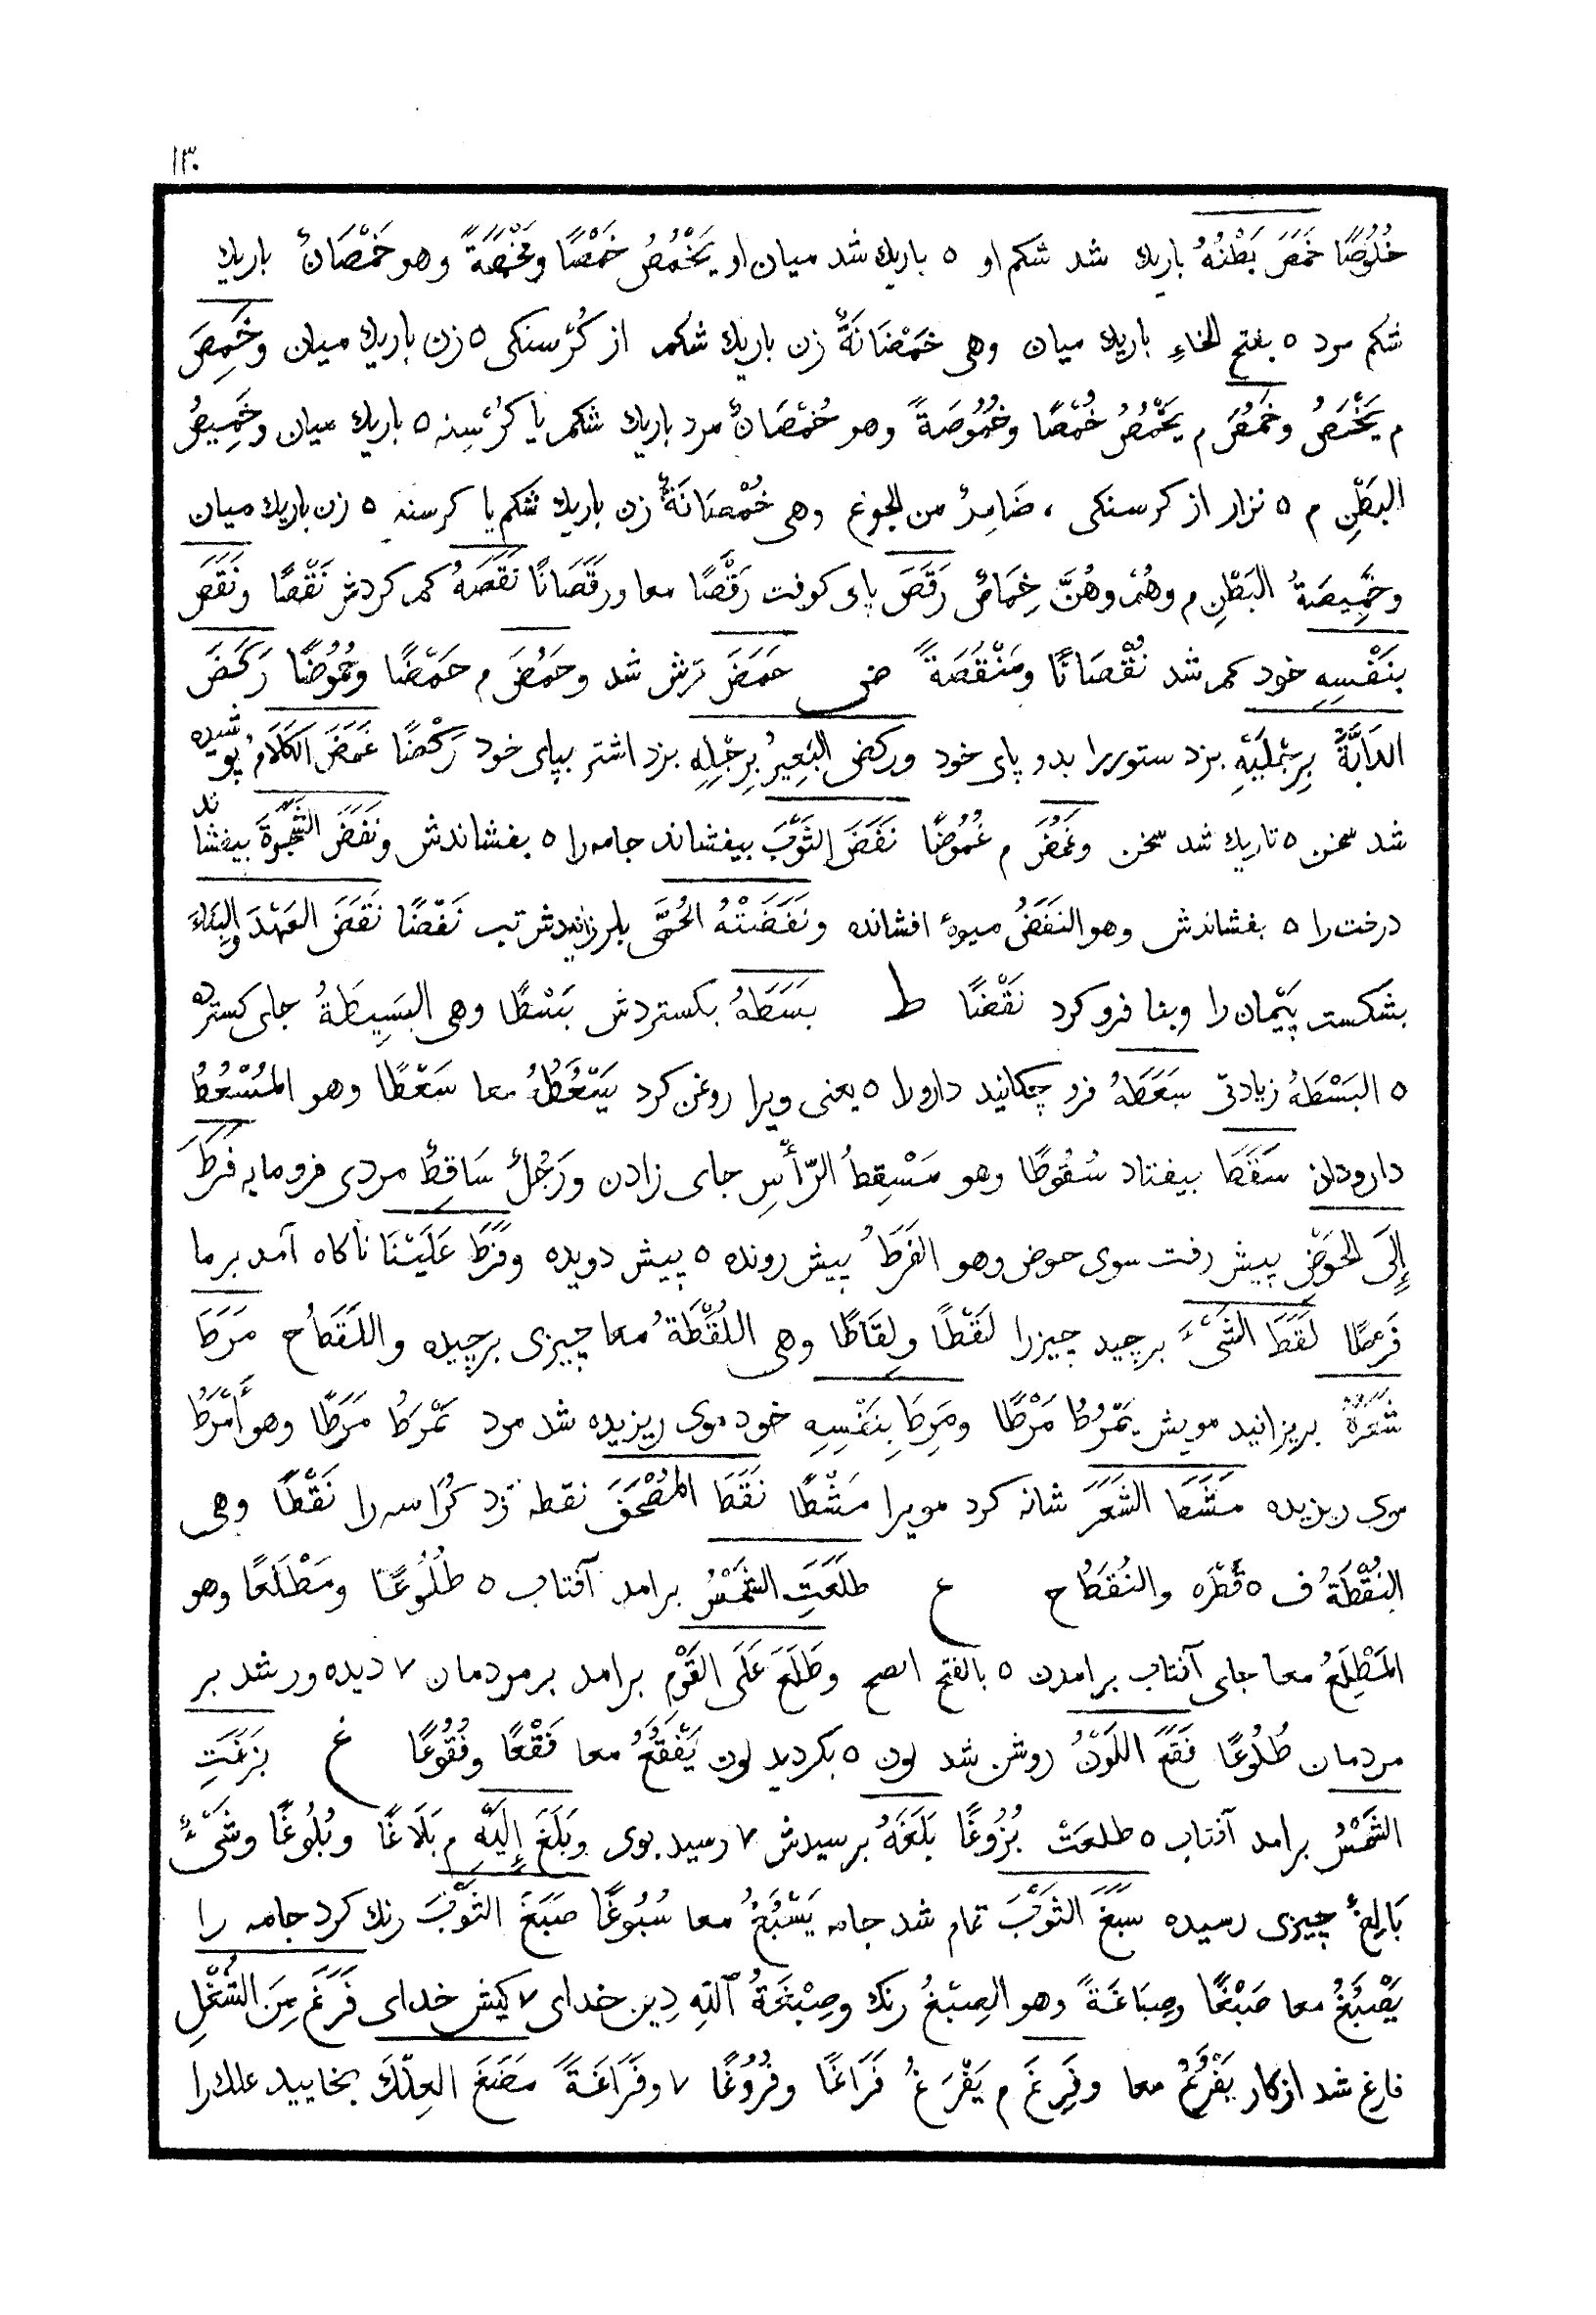 ١٣٠
خُلُوصًا خَمَصَ بَطْنُهُ باریك شد شکم او ٥ باریك شد میان او یَخْمُصُ خَمْصًا ومَخْمَصَةً وهو خَمْصَانُ باریك
شکم مرد ٥ بفتح الخاءِ باریك میان وهی خَمْصَانَةٌ زن باریك شکم از کُرْسنکی ٥ زن باریك میان وخَمِصَ
م یَخْمَصُ وخَمُصَ م یَخْمُصُ خُمْصًا وخُمُوصَةً وهو خُمْصَانٌ مرد باریك شکم یا کُرْسِنه ٥ باریك میان وخَمِیصُ
البَطْنِ م ٥ نزار از کرسنکی ، ضَامِرٌ من الجوع وهی خُمْصَانَةٌ زن باریك شکم یا کرسنه ٥ زن باریك میان
وخَمِیصَةُ البَطْنِ م وهُمْ وهُنَّ خِمَاصٌ رَقَصَ پای کوفت رَقْصًا معا ورَقَصَانًا نَقَصَهُ کم کردش نَقْصًا ونَقَصَ
بِنَفْسِهِ خود کم شد نُقْصَانًا ومَنْقَصَةً ض حَمَضَ ترش شد وحَمُضَ م حَمْضًا وحُمُوضًا رَکَضَ
الدَابَّةَ بِرِجْلَیْهِ بزد ستوررا بدو پای خود ورکض البَعِیرُ بِرِجْلِهِ بزد اشتر بپای خود رَکْضًا غَمَضَ الکَلَامُ پوشیده
شد سخن ٥ تاریك شد سخن وغَمُضَ م غُمُوضًا نَفَضَ الثَوْبَ بیفشاند جامه را ٥ بفشاندش ونَفَضَ الشَّجَرَةَ بیفشاند
درخت را ٥ بفشاندش وهو النَفَضُ میوهٔ افشانده ونَفَضَتْهُ الحُمَّی بلرزانیدش تب نَفْضًا نَقَضَ العَهْدَ والبِنَاءَ
بشکست پَیْمان را وبنا فرو کرد نَقْضًا ط بَسَطَهُ بکستردش بَسْطًا وهی البَسِیطَةُ جای کسترده
٥ البَسْطَهُ زیادتی سَعَطَهُ فرو چکانید دارو را ٥ یعنی ویرا روغن کرد یَسْعُطُهُ معا سَعْطًا وهو المُسْعُطُ
دارودان سَقَطَ بیفتاد سُقُوطًا وهو مَسْقِطُ الرَّأْسِ جای زادن ورَجُلٌ سَاقِطٌ مردی فرومایه فَرَطَ
إِلَی الحَوْضِ پیش رفت سوی حوض وهو الفَرَطُ پیش رونده ٥ پیش دویده وفَرَطَ عَلَیْنَا ناکاه آمد بر ما
فَرْطًا لَقَطَ الشَیْءَ برچید چیزرا لَقْطًا ولِقَاطًا وهی اللُقْطَةُ معا چیزی برچیده واللُقَطُ ح مَرَطَ
شَعَرَهُ بریزانید مویش یَمْرُطُ مَرْطًا ومَرِطَ بِنَفْسِهِ خود موی ریزیده شد مرد یَمْرَطُ مَرَطًا وهو أَمْرَطُ
موی ریزیده مَشَطَ الشَعَرَ شانه کرد مویرا مَشْطًا نَقَطَ المُصْحَفَ نقطه زد کرّاسه را نَقْطًا وهی
النُقْطَةُ ف ٥ قَطْرَه والنُقَطُ ح ع طَلَعَتِ الشَمْسُ برامد آفتاب ٥ طُلُوعًا ومَطْلَعًا وهو
المَطْلِعُ معا جای آفتاب برامدن ٥ بالفتح اصح وطَلَعَ عَلَی القَوْمِ برامد بر مردمان ٧ دیده ور شد بر
مردمان طُلُوعًا فَقَعَ اللَوْنُ روشن شد لون ٥ بکردید لون یَفْقَعُ معا فَقْعًا وفُقُوعًا غ بَزَغَتِ
الشَمْسُ برامد آفتاب ٥ طلعَتْ بُزُوغًا بَلَغَهُ برسیدش ٧ رسید بوی وبَلَغَ إِلَیْهِ م بَلَاغًا وبُلُوغًا وشَیْءٌ
بَالِغٌ چیزی رسیده سَبَغَ الثَوْبُ تمام شد جامه یَسْبُغُ معا سُبُوغًا صَبَغَ الثَوْبَ رنك کرد جامه را
یَصْبَغُ معا صَبْغًا وصِبَاغَةً وهو الصِبْغُ رنك وصِبْغَةُ ٱللهِ دین خدای ٧ کیش خدای فَرَغَ مِنَ الشُغْلِ
فارغ شد از کار یَفْرُغُ معا وفَرِغَ م یَفْرَغُ فَرَاغًا وفُرُوغًا ٧ وفَرَاغَةً مَضَغَ العِلْكَ بخایید علك را